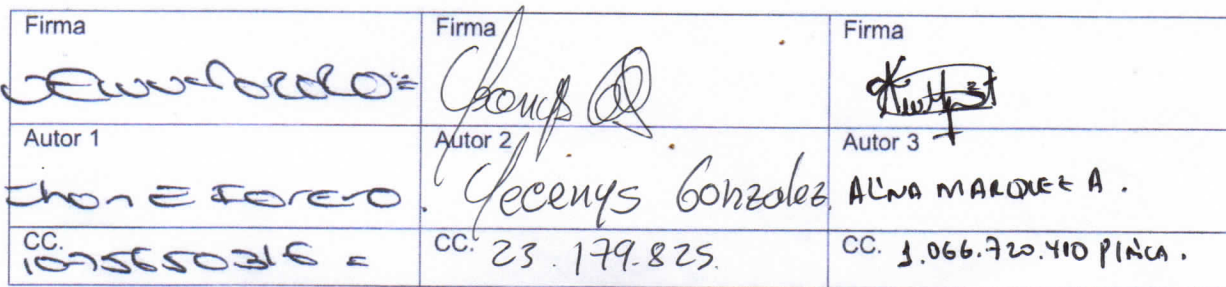 Firma Firma Firma
Autor 1 Autor 2 Autor 3
Jhon E Forero Yecenys Gonzalez ALINA MARQUEZ A.
CC. 1075650316 = CC. 23.179.825. CC. 1.066.720.410 PINCA.